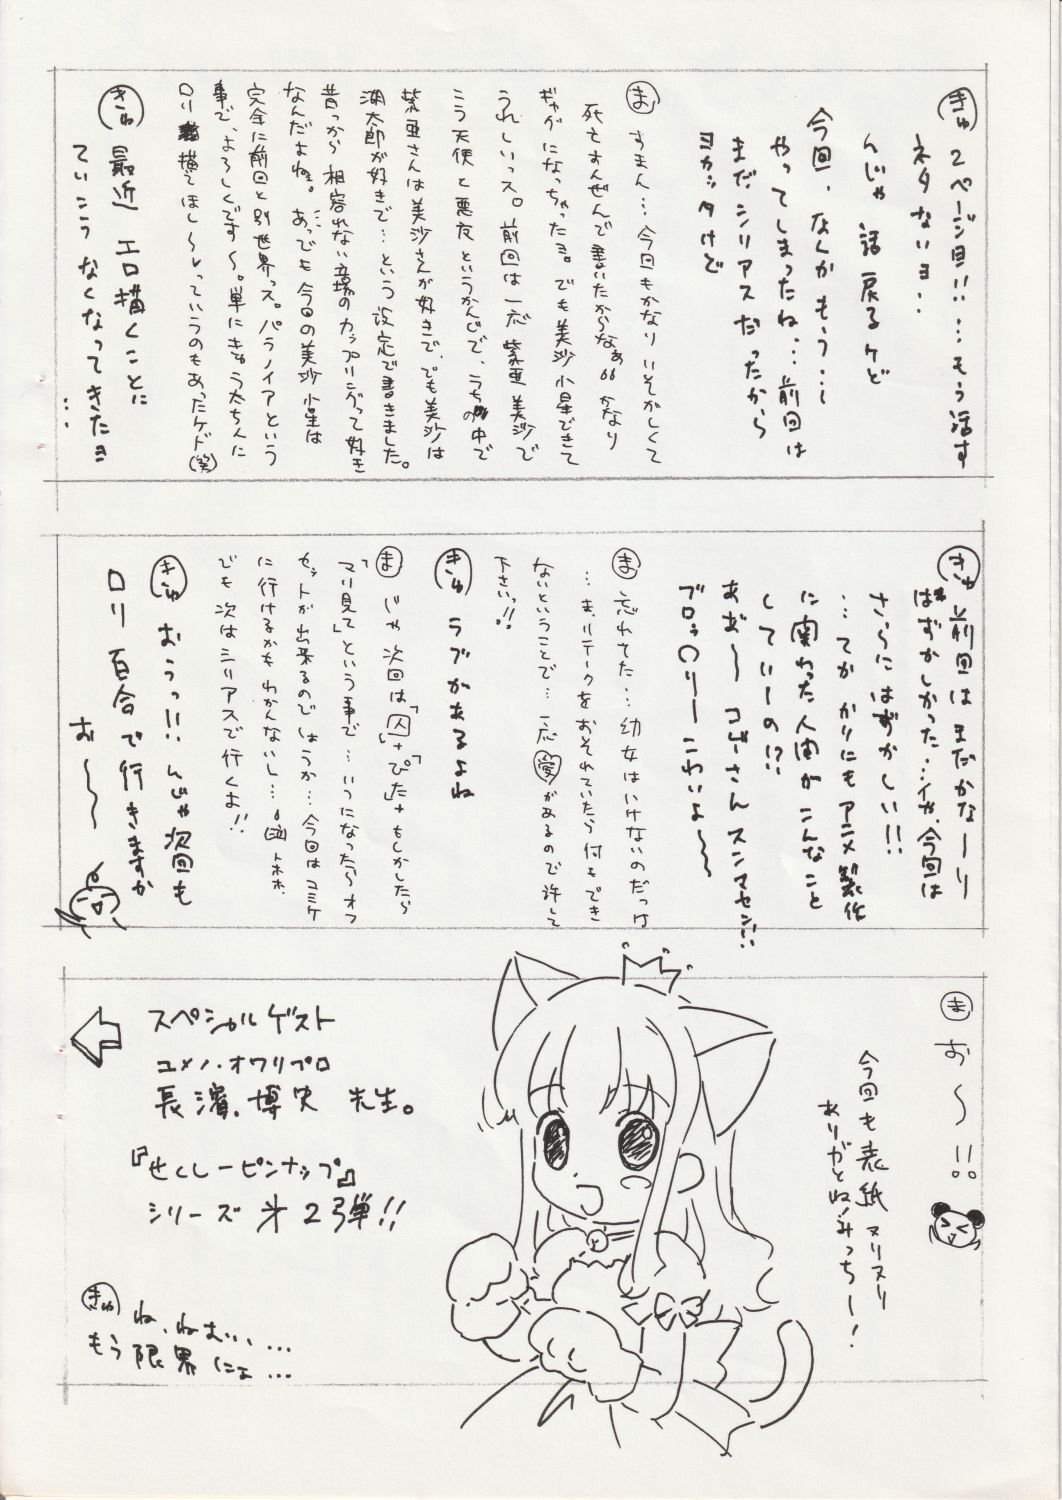 きゅ 2ページ目!!…もう話す
ネタないヨ…
んじゃ 話 戻るケど
今回、なんかもう……
やってしまったね…前回は
まだシリアスだったから
ヨカッタけど
ま すまん…今回もかなりいそがしくて
死にそんぜんで書いたからなぁ66 かなり
ギャグになっちゃったヨ。でも美沙小星できて
うれしいっス。前回は一応紫亜美沙で
こう天使と悪友というかんじで、うちの中で
紫亜さんは美沙さんが好きで、でも美沙は
湖太郎が好きで…という設定で書きました。
昔っから相容れない立場のカップリングって好き
なんだよねぇ。あっでも今回の美沙小星は
完全に前回と別世界っス。パラノイアという
事で、よろしくです〜。単にきゅう太ちんに
ロリ描いてほし〜っていうのもあったケド(笑)
きゅ 最近 エロ描くことに
ていこうなくなってきたヨ
…
きゅ 前回はまだかなーり
はずかしかった…イヤ、今回は
さらにはずかしい!!
…てか かりにもアニメ製作
に関わった人間がこんなこと
していーの!?
あぁ〜 コゲさんスンマセン!!
ブロッ〇リー こわいよ〜
ま 忘れてた…幼女はいけないのだっけ
…ま、リテークをおそれていたら何もでき
ないということで…一応愛があるので許して
下さいっ!!
きゅ ラブがあるよね
ま じゃ次回は「囚」+「ぴた」+もしかしたら
「マリ見て」という事で…いつになったらオフ
セットが出来るのでしょうか…今回はコミケ
に行けるかもわかんないし…(涙)トホホ.
でも次はシリアスで行くよ!!
きゅ おうっ!! んじゃ次回も
ロリ百合で行きますか
お〜〜
ま お〜!!
今回も表紙ヌリヌリ
ありがとね!みっちー!
スペシャルゲスト
ユメノ・オワリプロ
長濱.博史 先生。
『せくしーピンナップ』
シリーズ 㐧2弾!!
きゅ ね、ねむい…
もう限界にょ…
と